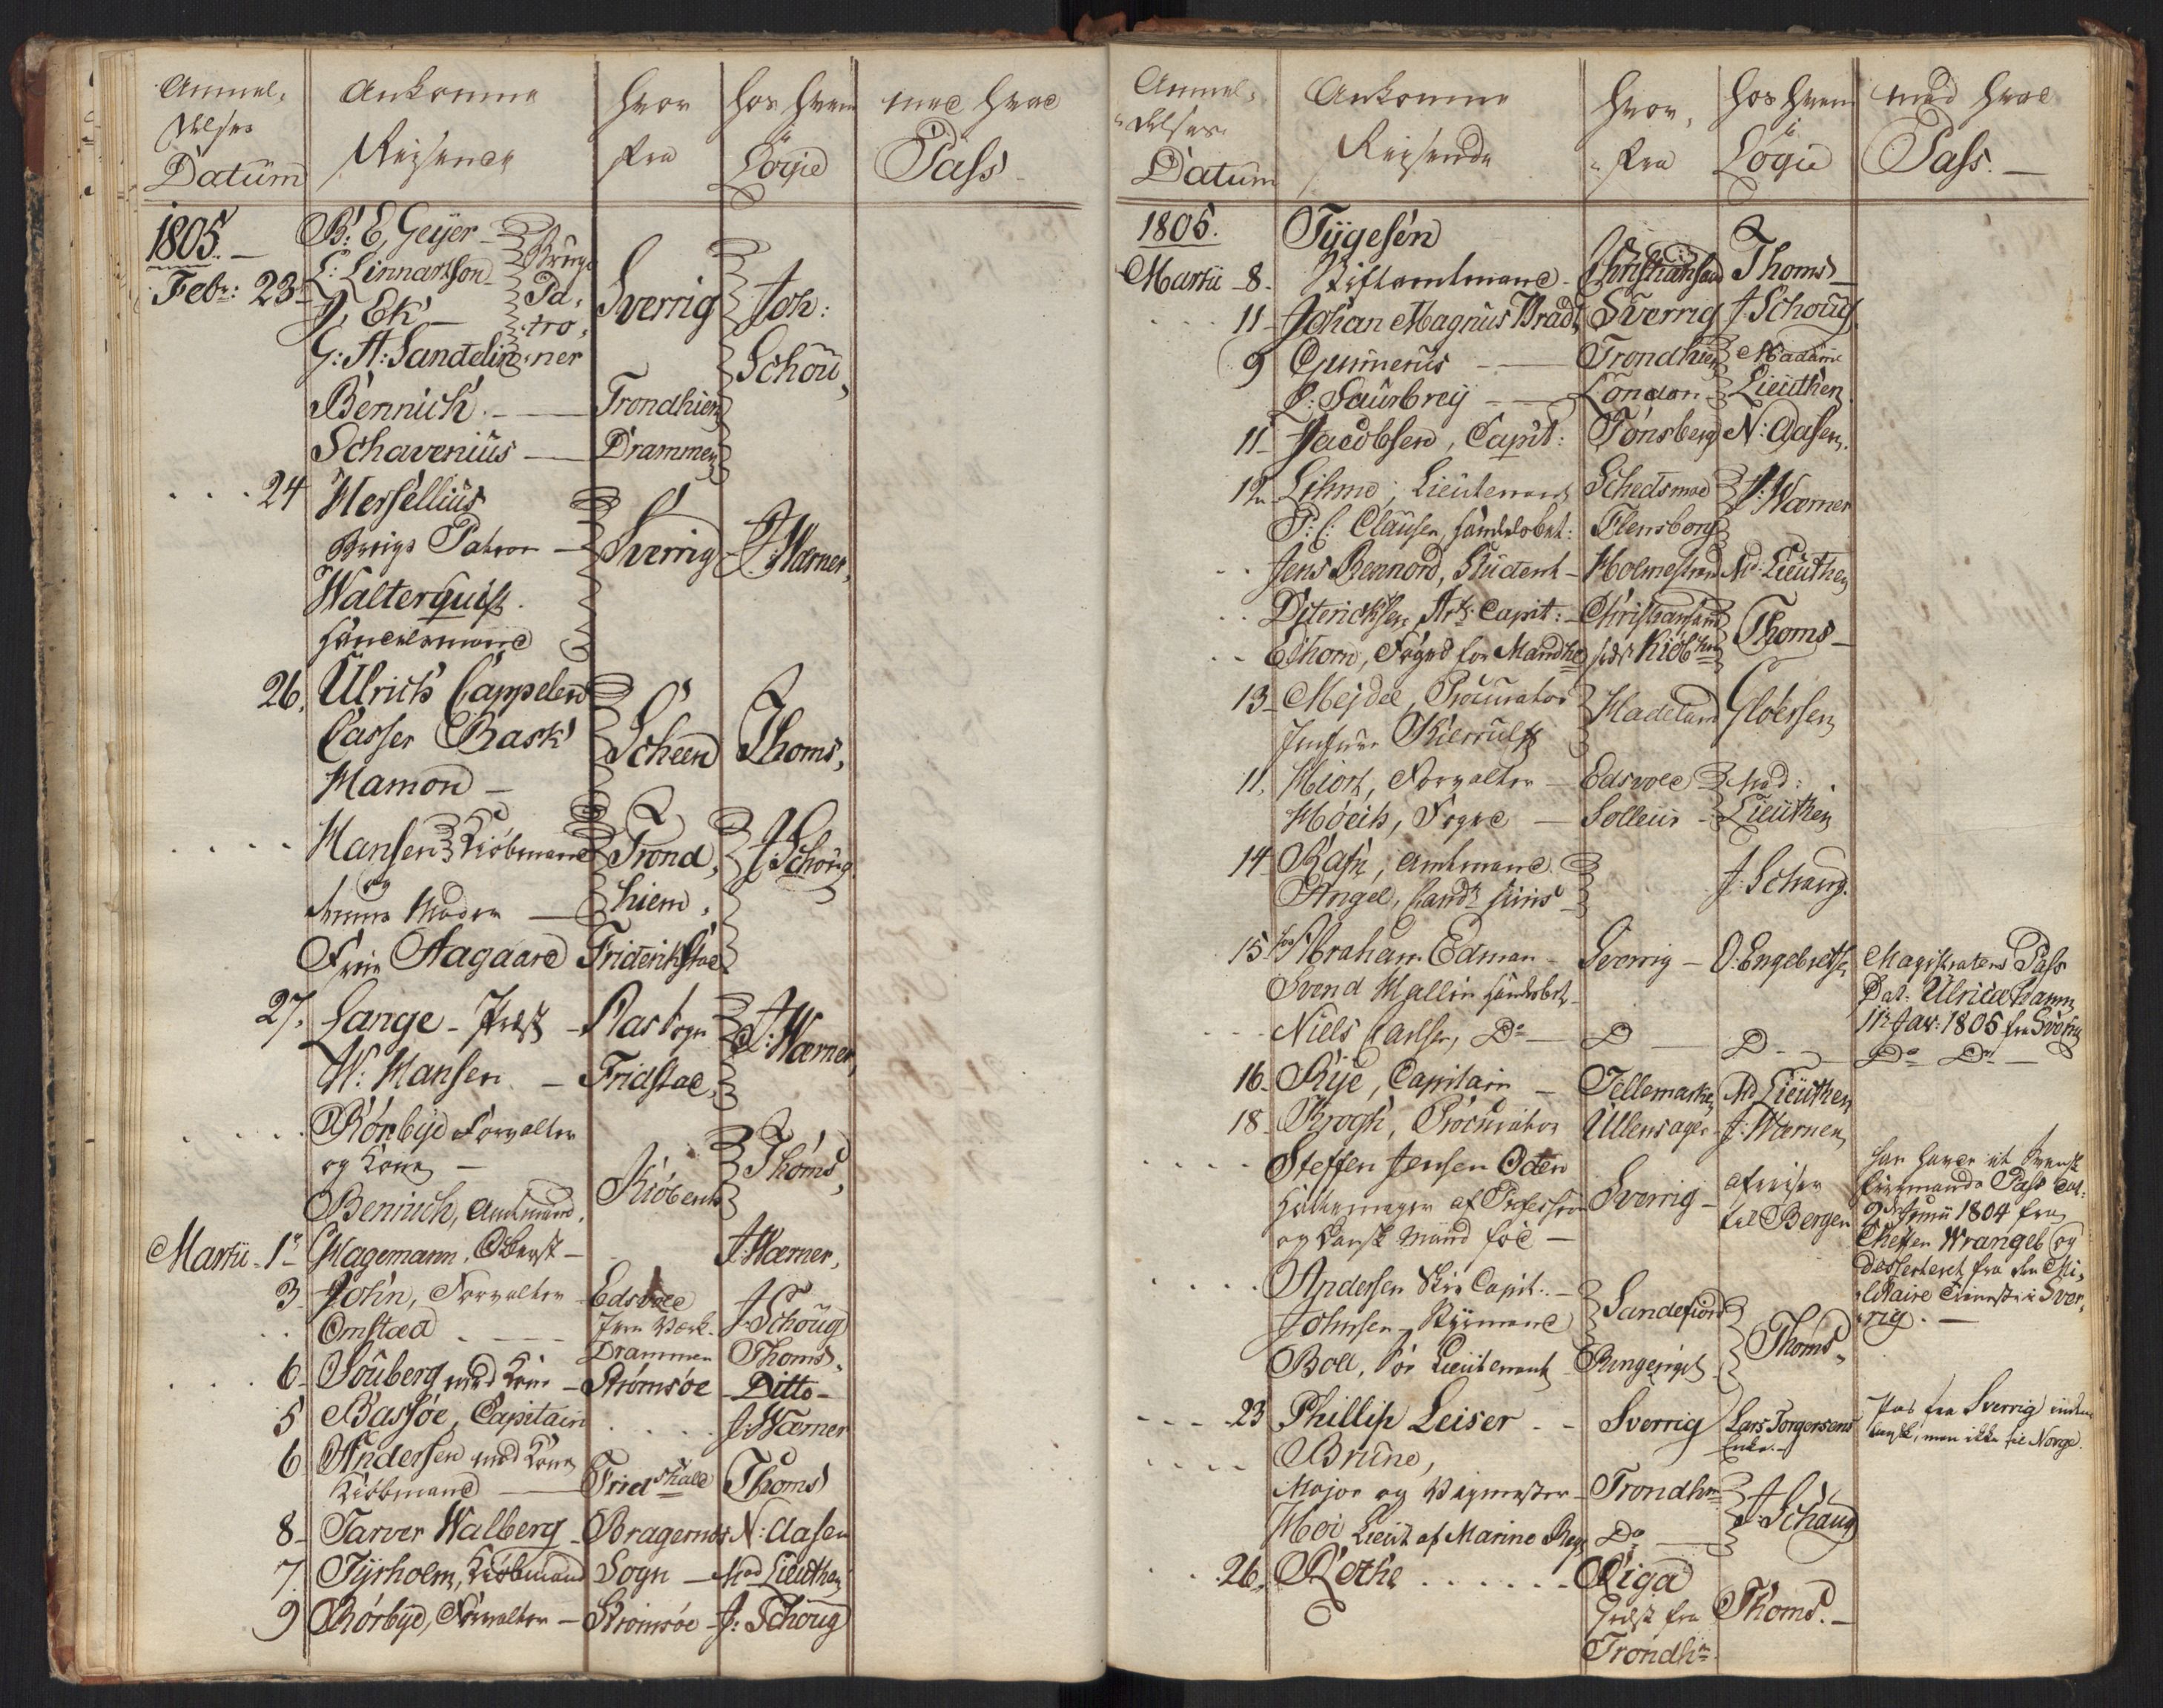 Anmel,
delses
Datum
Ankomne
Reisende
hvor
fra
hos hvem
i
Logie
med hvad
Pass
1805.
Febr: 23
B: E, Geijer
L: Linnartson
J, Ek
G: A: Sandelin
Brugs
Pa,
tro,
ner
Sverrig
Joh:
Schou,
Bennich. Trondhiem
Schavenius Drammen
24 Hersellius
Brugs Patron Sverrig J: Wærner,
Walterquist.
Handelsmand
26, Ulrich Cappelen
Casser Bask Scheen Thoms,
Mamon
Hansen Kiøbmand Trond, J: Schoug
og
hiem,
Frue Aagaard Friderikstad
27, Lange - Præst J: Wærner,
W: Hansen. Fridstad,
Rörbye Forvalter
og Kone Thoms,
Bennich, Amtmand, Kiöbenh
Martii 1te Wagemann, Oberst J: Wærner,
3 John, Forvalter Edsvold J: Schoug
Jern Værk
Omstad Drammen Thoms,
6 Souberg med Kone Strömsöe Ditto
5 Bassöe, Capitain J: Wærner
6 Andersen med Kone
Kiöbmand Fridrhald Thoms
8 Tarver Walberg Bragernes N: Aasen
7. Tyrholm, Kiöbmand Sogn Mad Lieuthen
9 Rörbye, Forvalter Strömsöe J: Schoug
Anmel,
delses
Datum
Ankomne
Reisende
hvor,
fra
hos hvem
i
Logie
med hvad
Pass.
1805.
Martii 8. Tygesen
Stiftamtmand Christiansand Thoms
11 Johan Magnus Bradt Sverrig J: Schoug
9 Gunnerus Trondhiem Madame
J: Saurbrey London Lieuthen
11 Jacobsen, Capit: Tönsberg N: Aasen.
12 Lihme, Lieutenant Schedsmoe J: Wærner
P: C: Clausen, Handelsbet: Flensborg
Jens Rennord, Student Holmestrand Md: Lieuthen
Diterichsen, Art: Capit: Christiansand Thoms
Thorn, Foged for Mandhl
13 Mejdel, Procurator Hadeland Gloersen
Jomfrue Kierrulf
11, Hiort, Forvalter Edsvold Mad:
Lieuthen
Höeih, Foged Solleür
14 Rask, Amtmand J: Schaug.
Angel, Cand: juris
15 Abraham Edman Sverrig O: Engebretsen Magistratens Pass
Dat: Ulricahamn
11te Jan: 1805 fra Sverrig
Svend Hallin Handelsbet
Niels Carlsen, Do D D Do Do
16 Rye, Capitain Tellemarken Md Lieuthen
18 Krogh, Procurator Ullensager J: Wærner
Steffen Jensen Oden Sverrig afreiser
til Bergen
af Profession
og Dansk Mand föd
han haver et Svensk
Pass dat:
2de Junii 1804 fra
Cheffen Wrangel og
desserteret fra den Mi,
litaire Tieneste i Sver,
rig.
Andersen Skib Capit:
Johnsen Styrmand Sandefiord Thoms
Boll, Pr Lieutenant Ringerige
23 Phillip Leiser Sverrig Lars Torgersens
Enke.
Pas fra Sverrig
men ikke til Norge.
Brüne,
Major og Vejmester Trondhm J: Schaug
Moe Lieut af Marine Reg Do
26, Rothe Riga Thoms.
sidst fra
Trondhm